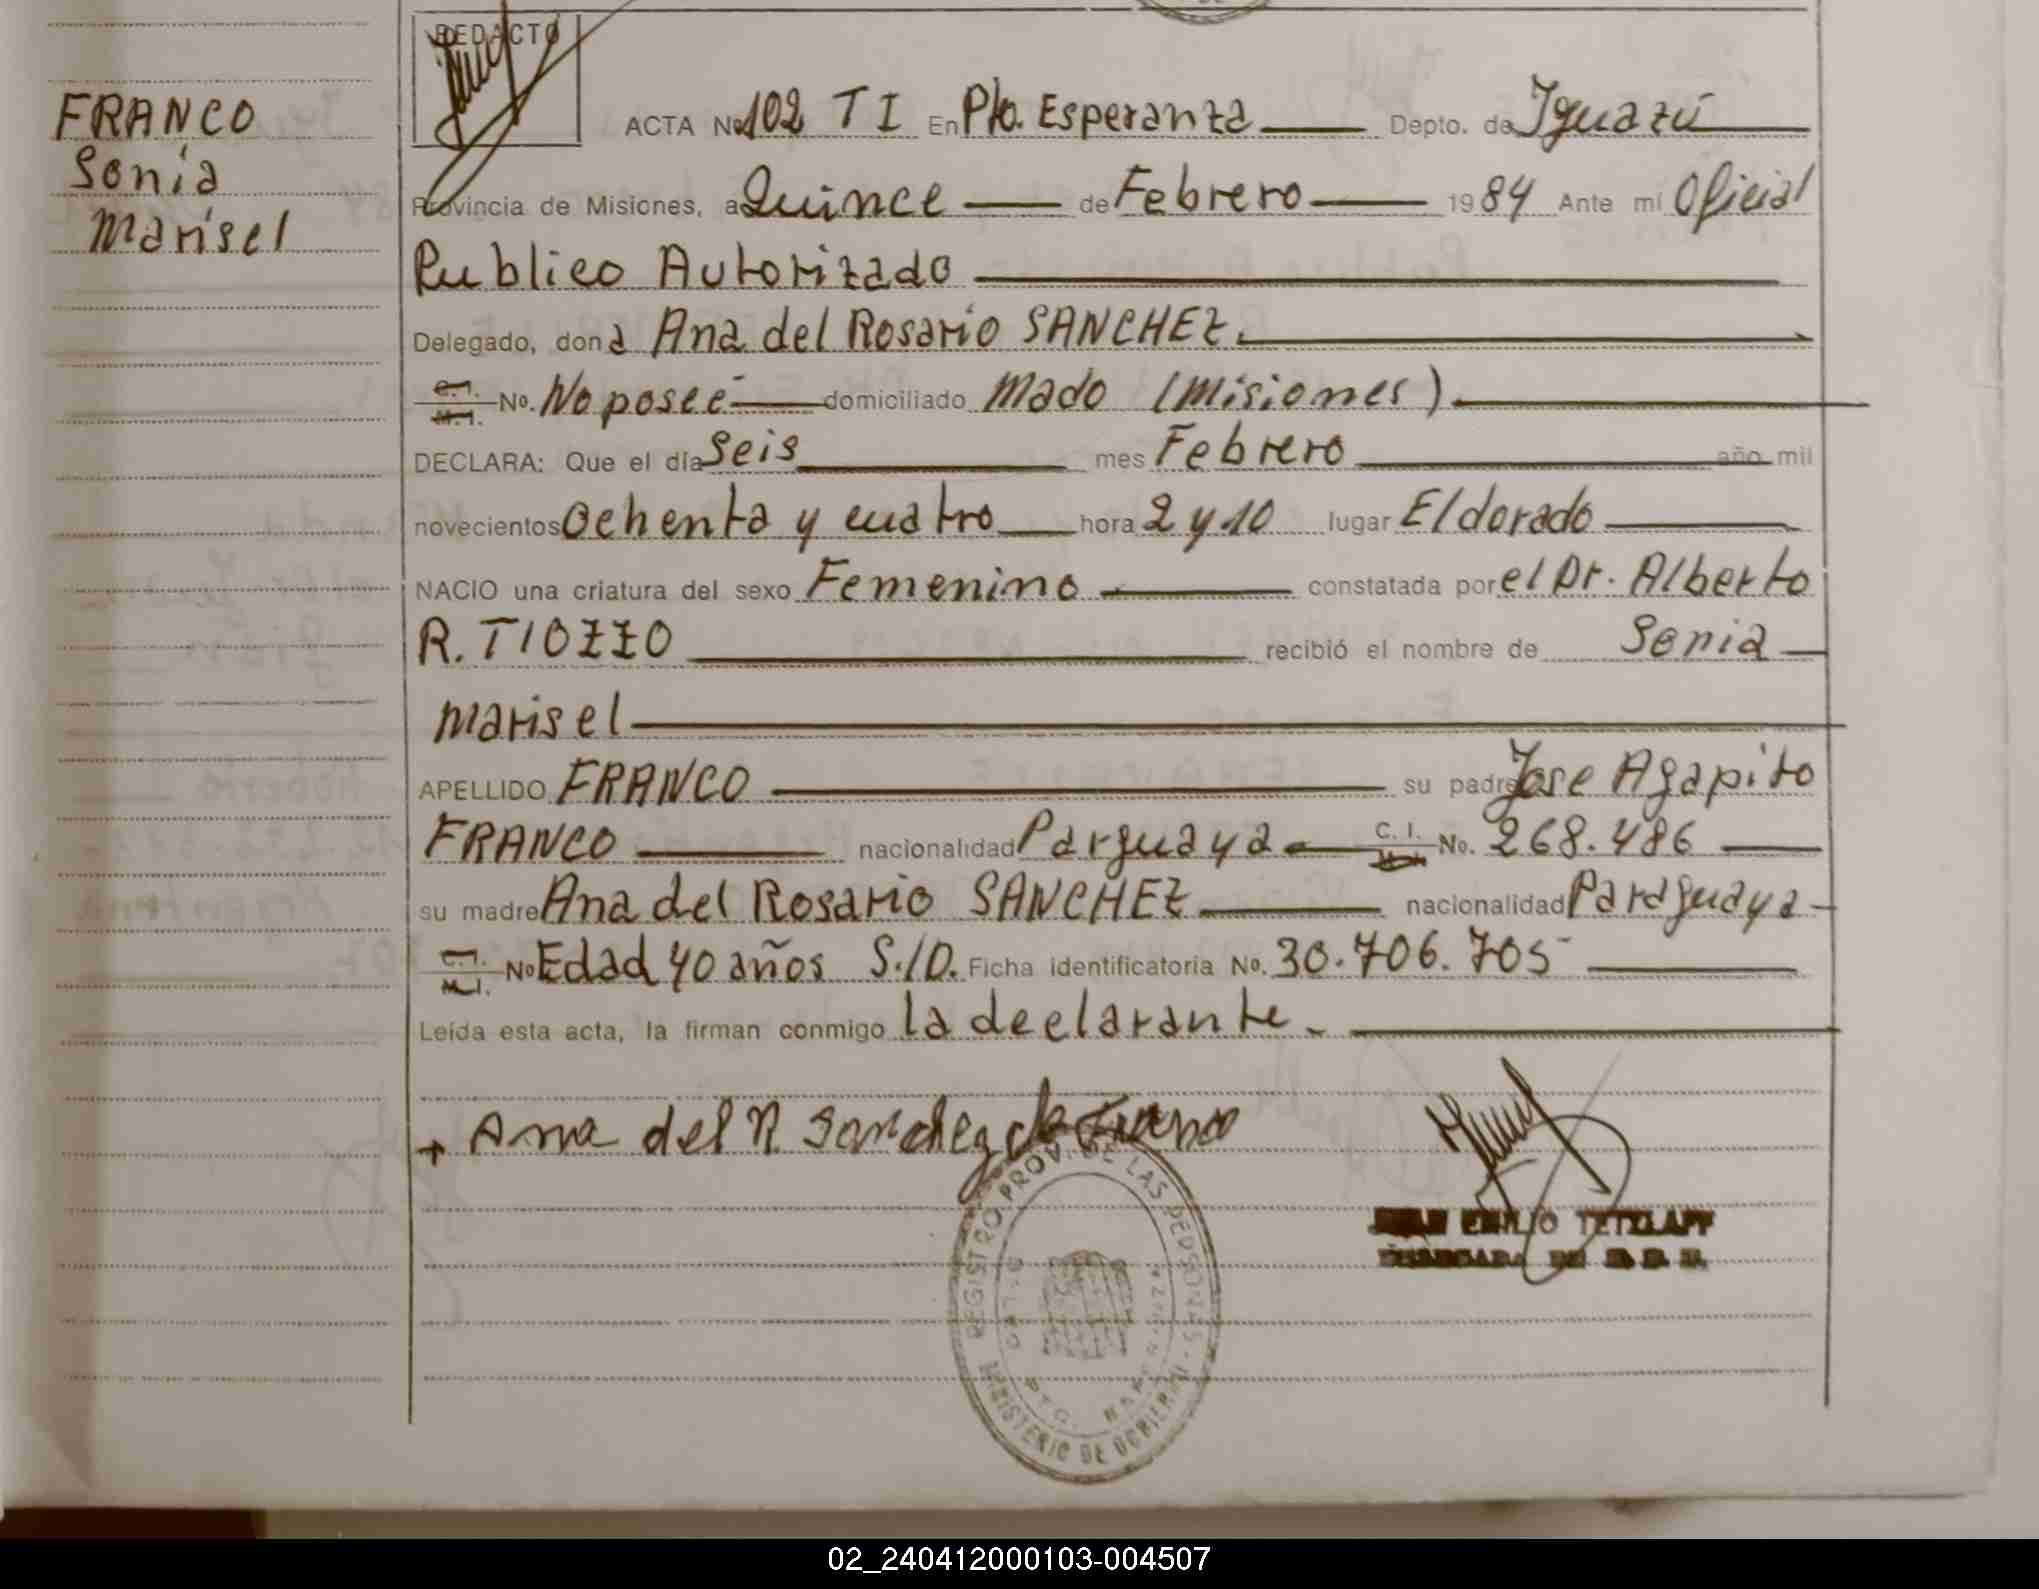 REDACTO
FRANCO
Sonia
Marisel
ACTA No. 102 TI En Pto. Esperanza Depto. de Iguazú
Provincia de Misiones, a Quince de Febrero 1984 Ante mí Oficial
Publico Autorizado
Delegado, dona Ana del Rosario SANCHEZ.
C.I. M.I. No. No posee domiciliado Mado (Misiones)
DECLARA: Que el día Seis mes Febrero año mil
novecientos Ochenta y cuatro hora 2 y 10 lugar Eldorado
NACIO una criatura del sexo Femenino constatada por el Dr. Alberto
R. TIOZZO recibió el nombre de Sonia
Marisel
APELLIDO FRANCO su padre Jose Agapito
FRANCO nacionalidad Parguaya C.I. M.I. No. 268.486
su madre Ana del Rosario SANCHEZ nacionalidad Paraguaya
C.I. M.I. No Edad 40 años S/D. Ficha identificatoria No. 30.706.705
Leída esta acta, la firman conmigo la declarante.
+ Ana del R. Sanchez de Franco
REGISTRO PROV. DE LAS PERSONAS - MINISTERIO DE GOBIERNO
EMILIO TETZLAFF
02_240412000103-004507